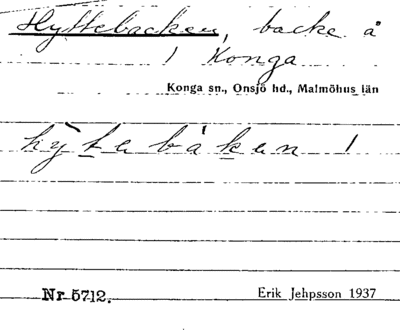 Hyttebacken, backe å
1 Konga
Konga sn., Onsjö hd., Malmöhus län
hỳtebákен 1
Nr 5712.
Erik Jehpsson 1937